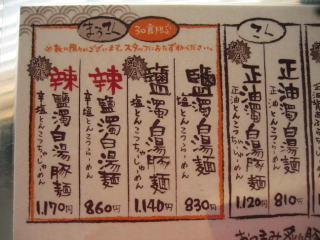 まっこん
30食限定
※数に限りがございます。スタッフにおたずねください。
鹽濁白湯麺
塩とんこつらーめん
830円
鹽濁白湯豚麺
塩とんこつちゃーしゅーめん
1,140円
辣鹽濁白湯麺
辛塩とんこつらーめん
860円
辣鹽濁白湯豚麺
辛塩とんこつちゃーしゅーめん
1,170円
こん
正油濁白湯麺
正油とんこつらーめん
810円
正油濁白湯豚麺
正油とんこつちゃーしゅーめん
1,120円
おつまみ